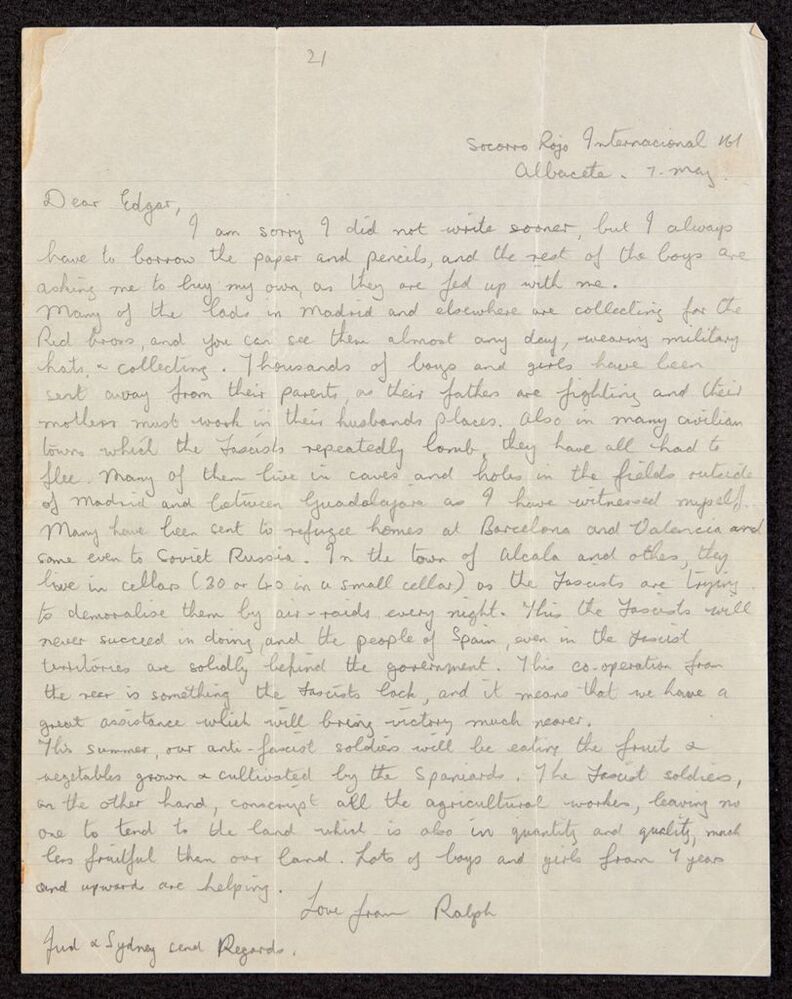 21
Socorro Rojo Internacional 161
Albacete. 7. May.
Dear Edgar,
I am sorry I did not write sooner, but I always
have to borrow the paper and pencils, and the rest of the boys are
asking me to buy my own, as they are fed up with me.
Many of the lads in Madrid and elsewhere are collecting for the
Red Cross, and you can see them almost any day, wearing military
hats, & collecting. Thousands of boys and girls have been
sent away from their parents, as their fathers are fighting and their
mothers must work in their husbands places. Also in many civilian
towns which the Fascists repeatedly bomb, they have all had to
flee. Many of them live in caves and holes in the fields outside
of Madrid and between Guadalajara as I have witnessed myself.
Many have been sent to refugee homes at Barcelona and Valencia and
some even to Soviet Russia. In the town of Alcala and others, they
live in cellars (30 or 40 in a small cellar) as the Fascists are trying
to demoralise them by air-raids every night. This the Fascists will
never succeed in doing, and the people of Spain, even in the Fascist
territories are solidly behind the government. This co-operation from
the rear is something the Fascists lack, and it means that we have a
great assistance which will bring victory much nearer.
This summer, our anti-fascist soldiers will be eating the fruit &
vegetables grown & cultivated by the Spaniards. The Fascist soldiers,
on the other hand, conscript all the agricultural workers, leaving no
one to tend to the land which is also in quantity and quality, much
less fruitful then our land. Lots of boys and girls from 7 years
and upward are helping.
Love from Ralph
& Sydney send Regards.